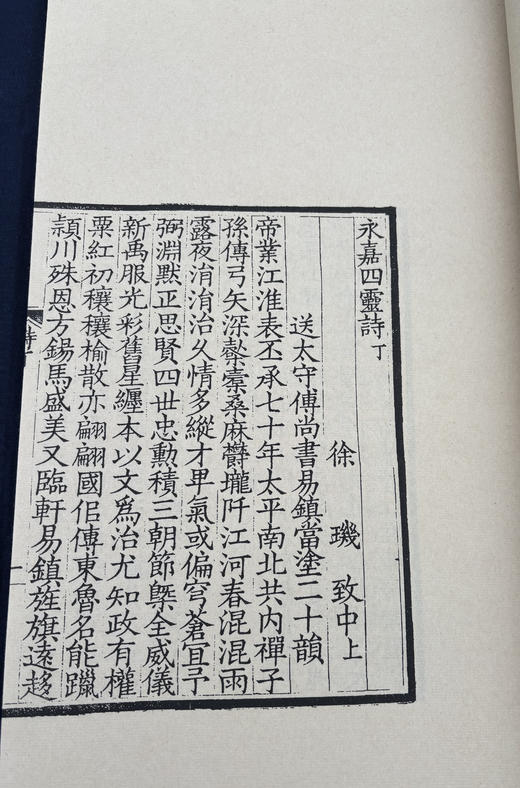 永嘉四靈詩丁
徐璣致中上
送太守傅尚書易鎮當塗二十韻
帝業江淮表丕承七十年太平南北共内禪子
孫傳弓矢深桑麻欝壠阡江河春混混雨
露夜涓涓治久情多縱才卑氣或偏穹蒼宜予
弼淵默正思賢四世忠勳積三朝節槩全威儀
新禹服光彩舊星纏本以文爲治尤知政有權
粟紅初穰穰榆散亦翩翩國佀傳東魯名能躐
潁川殊恩方錫馬盛美又臨軒易鎮旌旗遠趍